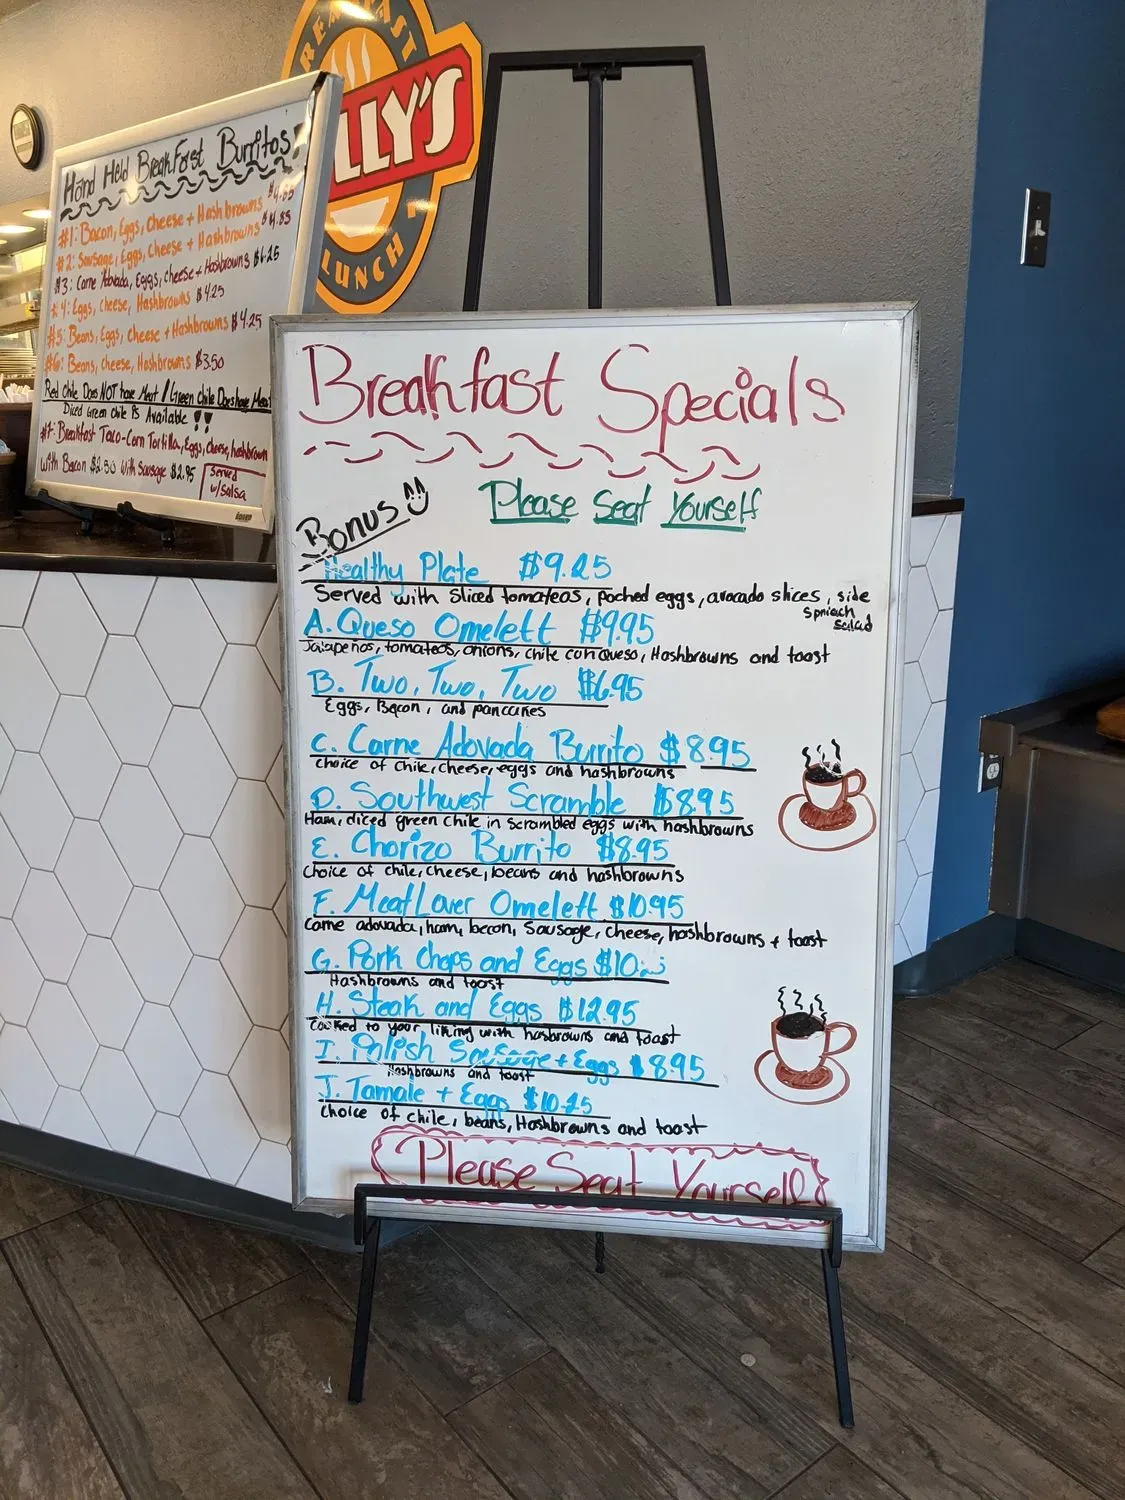 BREAKFAST
LLY'S
LUNCH
Hand Held Breakfast Burritos!
#1: Bacon, Eggs, Cheese + Hashbrowns $4.85
#2: Sausage, Eggs, Cheese + Hashbrowns $4.85
#3: Carne Adovada, Eggs, cheese + Hashbrowns $6.25
#4: Eggs, cheese, Hashbrowns $4.25
#5: Beans, Eggs, Cheese + Hashbrowns $4.25
#6: Beans, Cheese, Hashbrowns $3.50
Red Chile Does NOT have Meat / Green Chile Does have Meat
Diced Green Chile Is Available !!
#7: Breakfast Taco-Corn Tortilla, Eggs, cheese, hashbrown
with Bacon $2.50 with Sausage $2.95
Served
w/ Salsa
Breakfast Specials
Please Seat Yourself
Bonus
Healthy Plate $9.25
Served with sliced tomatoes, poched eggs, avocado slices, side
spniach
salad
A. Queso Omelett $9.95
Jalapeños, tomatoes, onions, chile con queso, Hashbrowns and toast
B. Two, Two, Two $6.95
Eggs, Bacon, and pancakes
C. Carne Adovada Burrito $8.95
choice of chile, cheese, eggs and hashbrowns
D. Southwest Scramble $8.95
Ham, diced green chile in scrambled eggs with hashbrowns
E. Chorizo Burrito $8.95
Choice of chile, cheese, beans and hashbrowns
F. Meat Lover Omelett $10.95
Carne adovada, ham, bacon, Sausage, cheese, hashbrowns + toast
G. Pork Chops and Eggs $10
Hashbrowns and toast
H. Steak and Eggs $12.95
Cooked to your liking with hasbrowns and toast
I. Polish Sausage + Eggs $8.95
Hashbrowns and toast
J. Tamale + Eggs $10.25
choice of chile, beans, Hashbrowns and toast
Please Seat Yourself